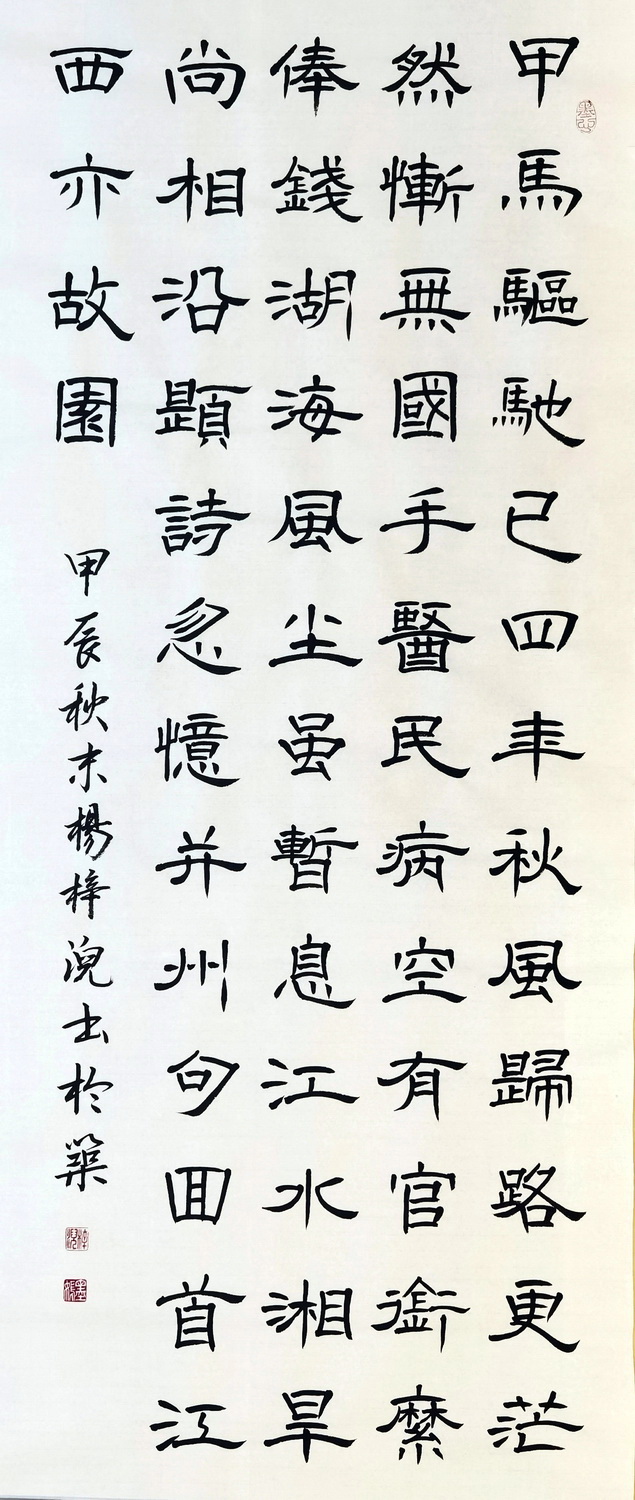 甲馬驅馳已四年秋風歸路更茫
然慚無國手醫民病空有官銜縻
俸錢湖海風尘虽暫息江水湘旱
尚相沿題詩忽憶并州句回首江
西亦故園
甲辰秋末楊梓淣书於築